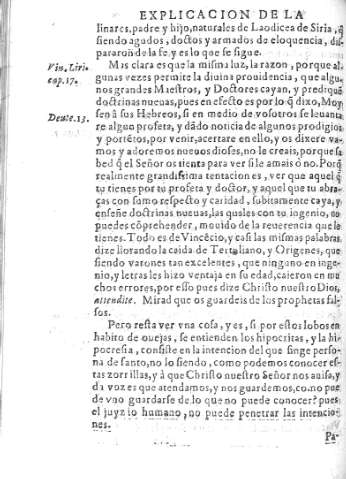 EXPLICACION DE LA
linares, padre y hijo, naturales de Laodicea de Siria, q̃
siendo agudos, doctos y armados de eloquencia, dis-
pararon de la fe, y es lo que se sigue.
Vin. Liri. cap. 17.
Mas clara es que la misma luz, la razon, porque al-
gunas vezes permite la diuina prouidencia, que algu-
nos grandes Maestros, y Doctores cayan, y prediquẽ
doctrinas nueuas, pues en efecto es por lo q̃ dixo, Moy-
Deute. 13.
sen â sus Hebreos, si en medio de vosotros se leuanta-
re algun profeta, y dãdo noticia de algunos prodigios
y portẽtos, por venir, acertare en ello, y os dixere va-
mos y adoremos nueuos dioses, no le creais, porque sa-
bed q̃ el Señor os tienta para ver si le amais ô no. Porq̃
realmente grandissima tentacion es, ver que aquel q̃
tu tienes por tu profeta y doctor, y aquel que tu abra-
ças con sumo respecto y caridad, subitamente caya, y
enseñe doctrinas nueuas, las quales con tu ingenio, no
puedes cõprehender, mouido de la reuerencia que le
tienes. Todo es de Vincẽcio, y casi las mismas palabras
dize llorando la caida de Tertuliano, y Origenes, que
siendo varones tan excelentes, que ninguno en inge-
nio, y letras les hizo ventaja en su edad, caieron en mu-
chos errores, por esso pues dize Christo nuestro Dios,
attendite. Mirad que os guardeis de los prophetas fal-
sos.
Pero resta ver vna cosa, y es, si por estos lobos en
habito de ouejas, se entienden los hipocritas, y la hi-
pocresia, consiste en la intencion del que finge perso-
na de santo, no lo siendo, como podemos conocer es-
tas zorrillas, y â que Christo nuestro Señor nos auisa, y
da vozes que atendamos, y nos guardemos, co.no pue-
de vno guardarse de lo que no puede conocer? pues
el juyzio humano, no puede penetrar las intencio-
nes.
Pa-